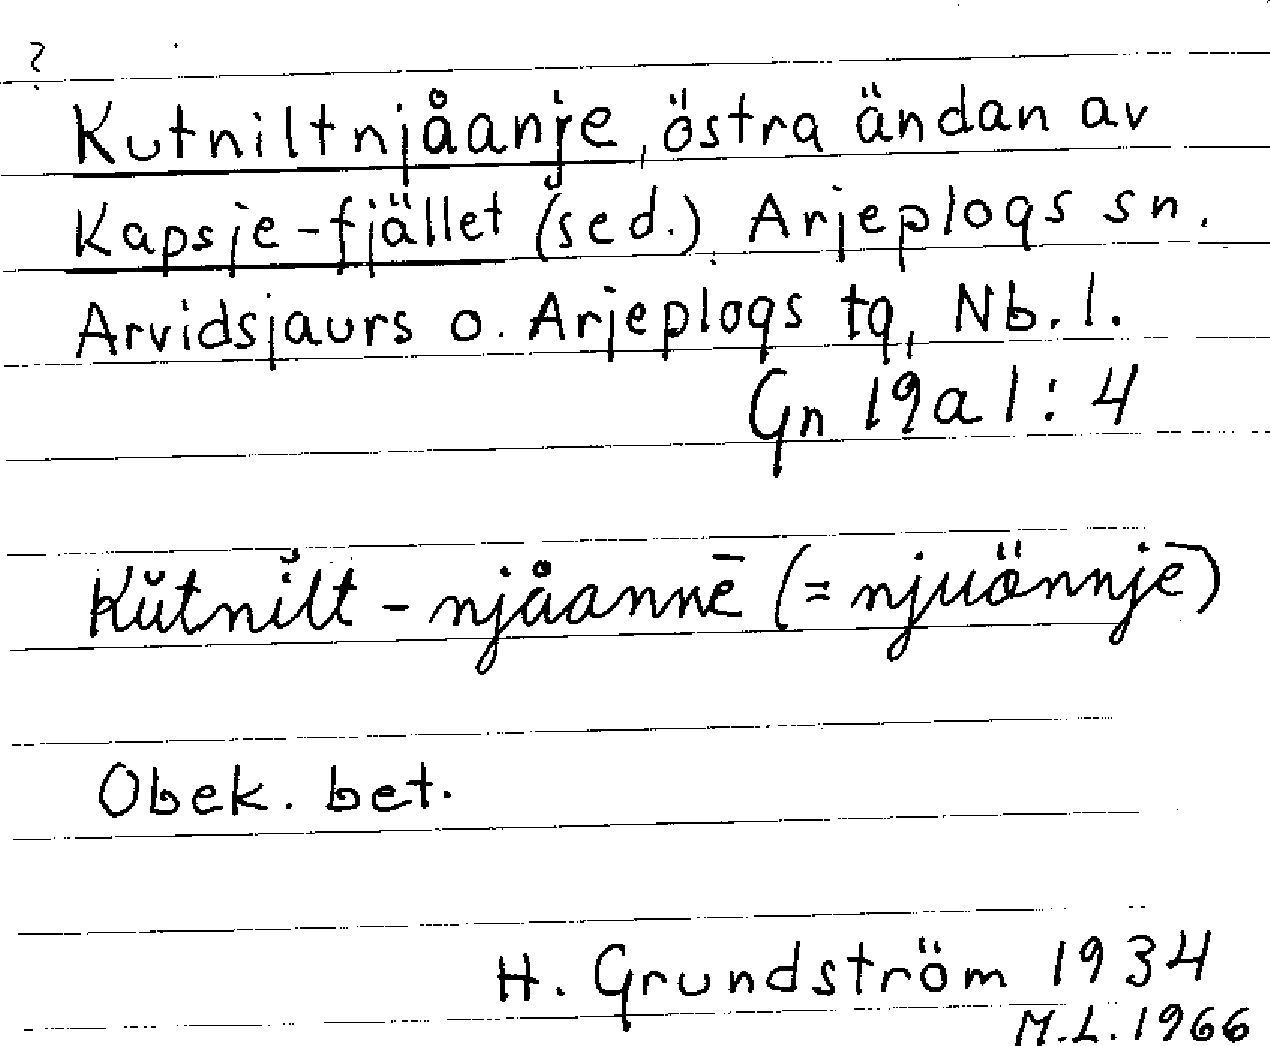 ?
Kutniltnjåanje, östra ändan av
Kapsje-fjället (sed.) Arjeplogs sn.
Arvidsjaurs o. Arjeplogs tg, Nb. l.
Gn 19a1:4
Kŭtnĭlt - njåannē (= njuönnjē)
Obek. bet.
H. Grundström 1934
M.L. 1966